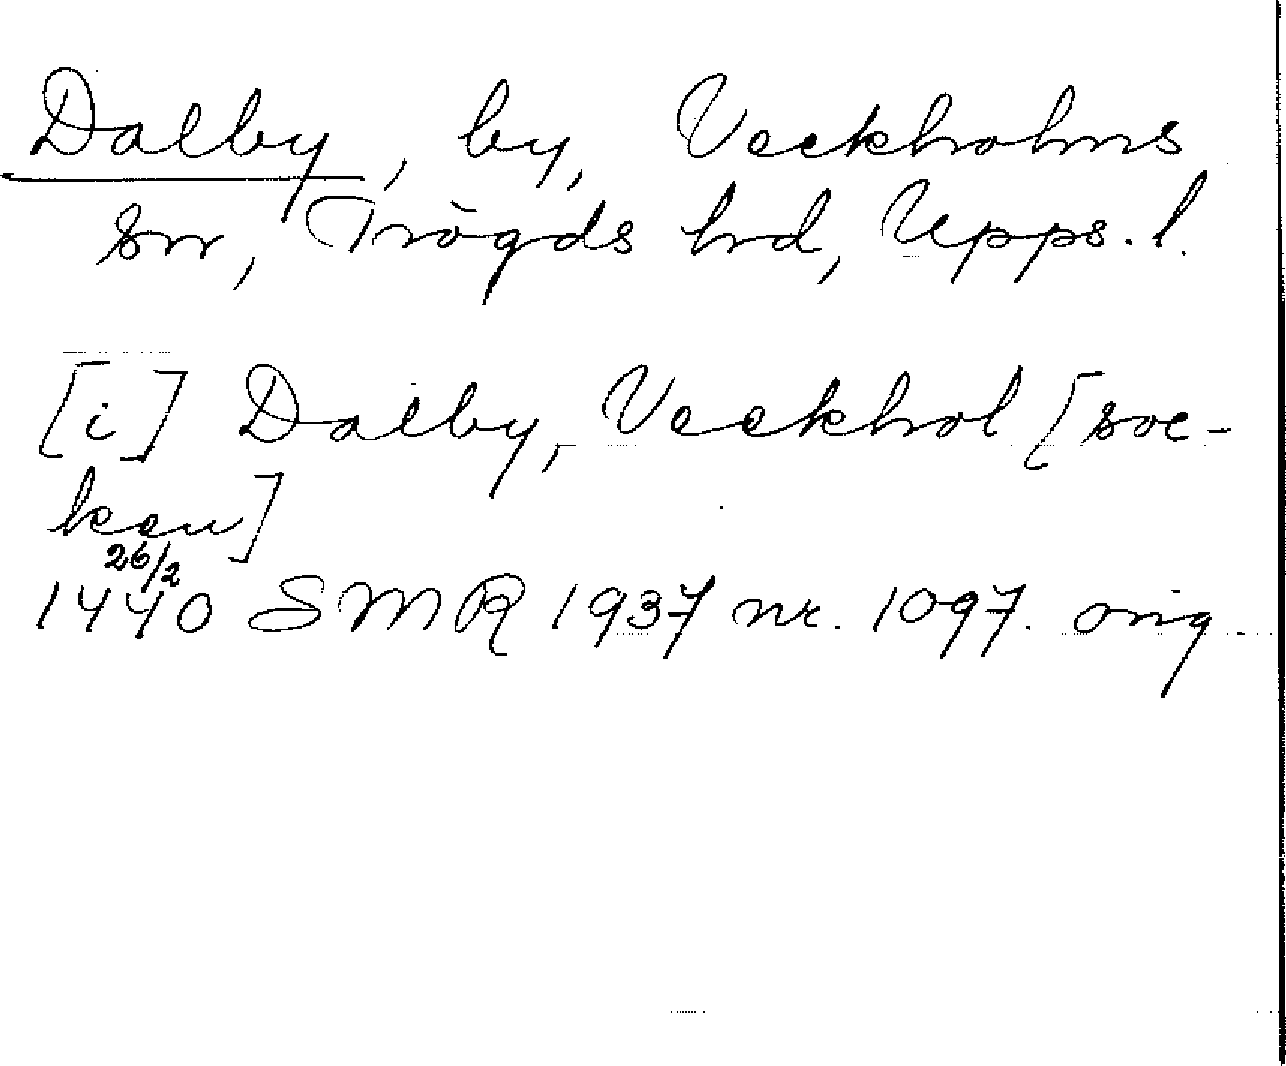 Dalby, by, Veckholms
sn, Trögds hrd, Upps. l.
[i] Dalby, Veckhol [soc-
ken]
26/2
1440 SMR 1937 nr. 1097. orig